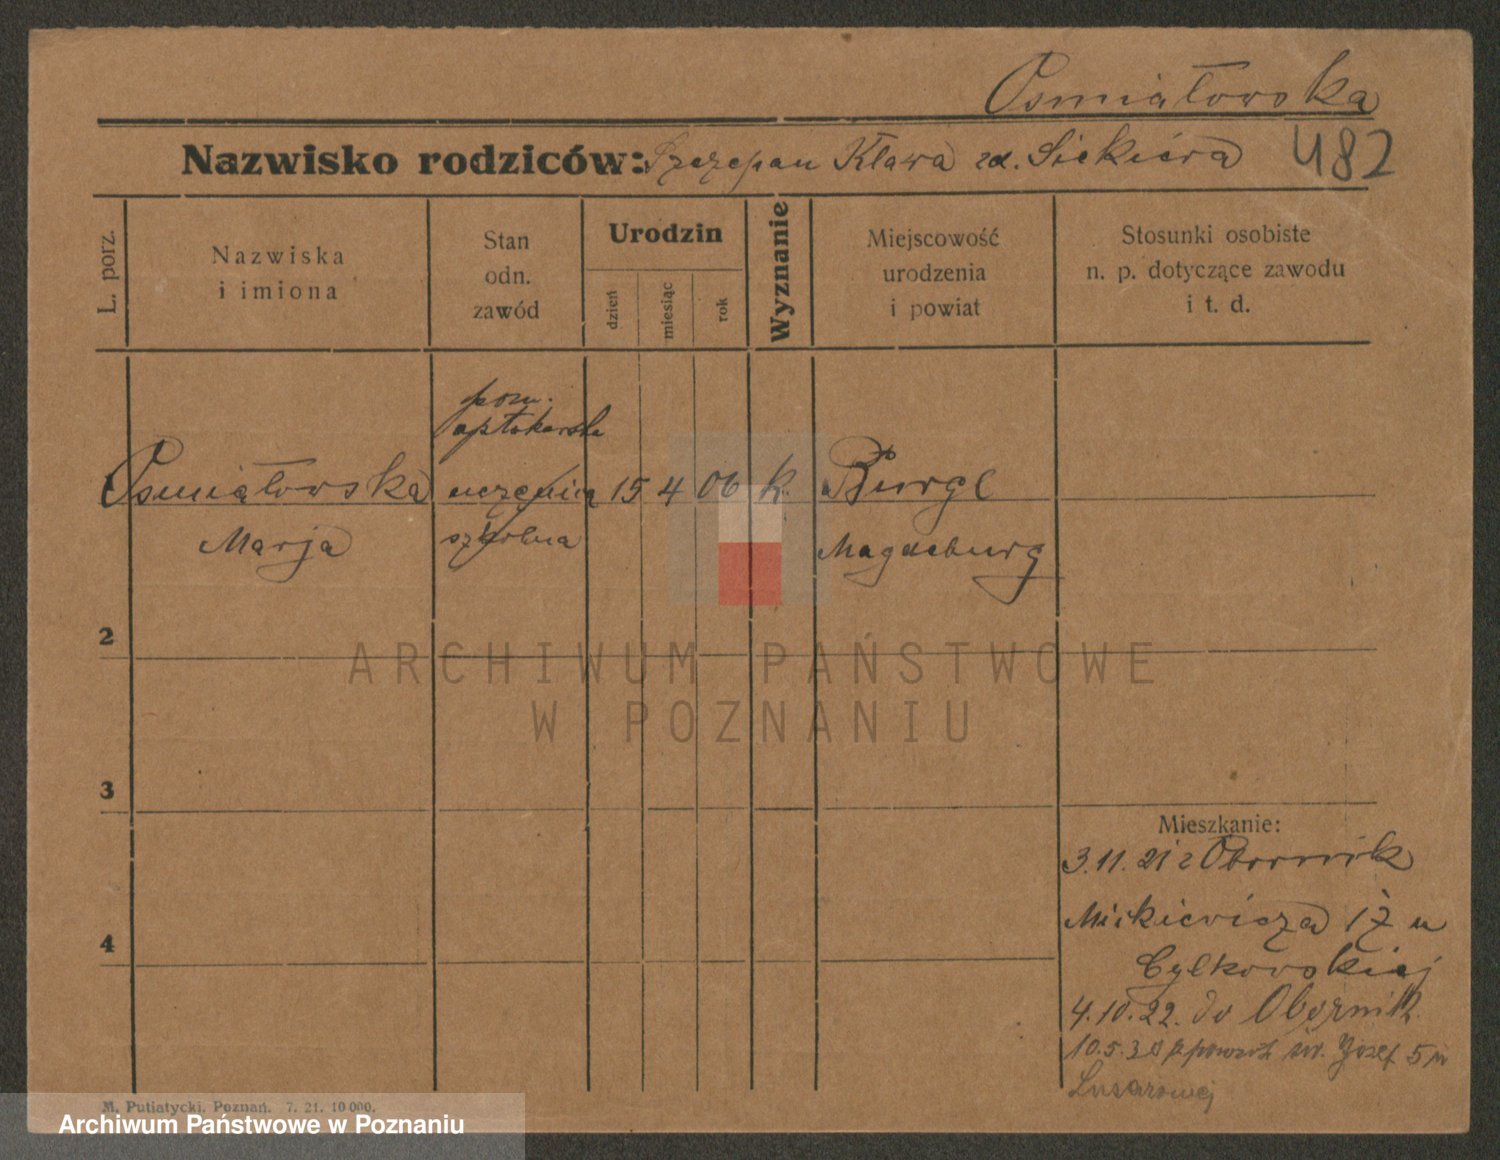 Osmiałowska
Nazwisko rodziców: Szczepan Kława zd. Siekiera 482
L. porz.
Nazwiska
i imiona
Stan
odn.
zawód
Urodzin
dzień
miesiąc
rok
Wyznanie
Miejscowość
urodzenia
i powiat
Stosunki osobiste
n. p. dotyczące zawodu
i t. d.
pom.
aptekarska
Osmiałowska uczenica 15 4 06 k. Burge
Marja szkolna Magdeburg
2
3
4
Mieszkanie:
3.11.21 z Obornik
Mickiewicza 17 u
Cylkowskiej
4.10.22. do Obornik
10.5.30 powrót św. Józef 5 u
M. Putiatycki, Poznań. 7. 21. 10 000.
ARCHIWUM PAŃSTWOWE
W POZNANIU
Archiwum Państwowe w Poznaniu